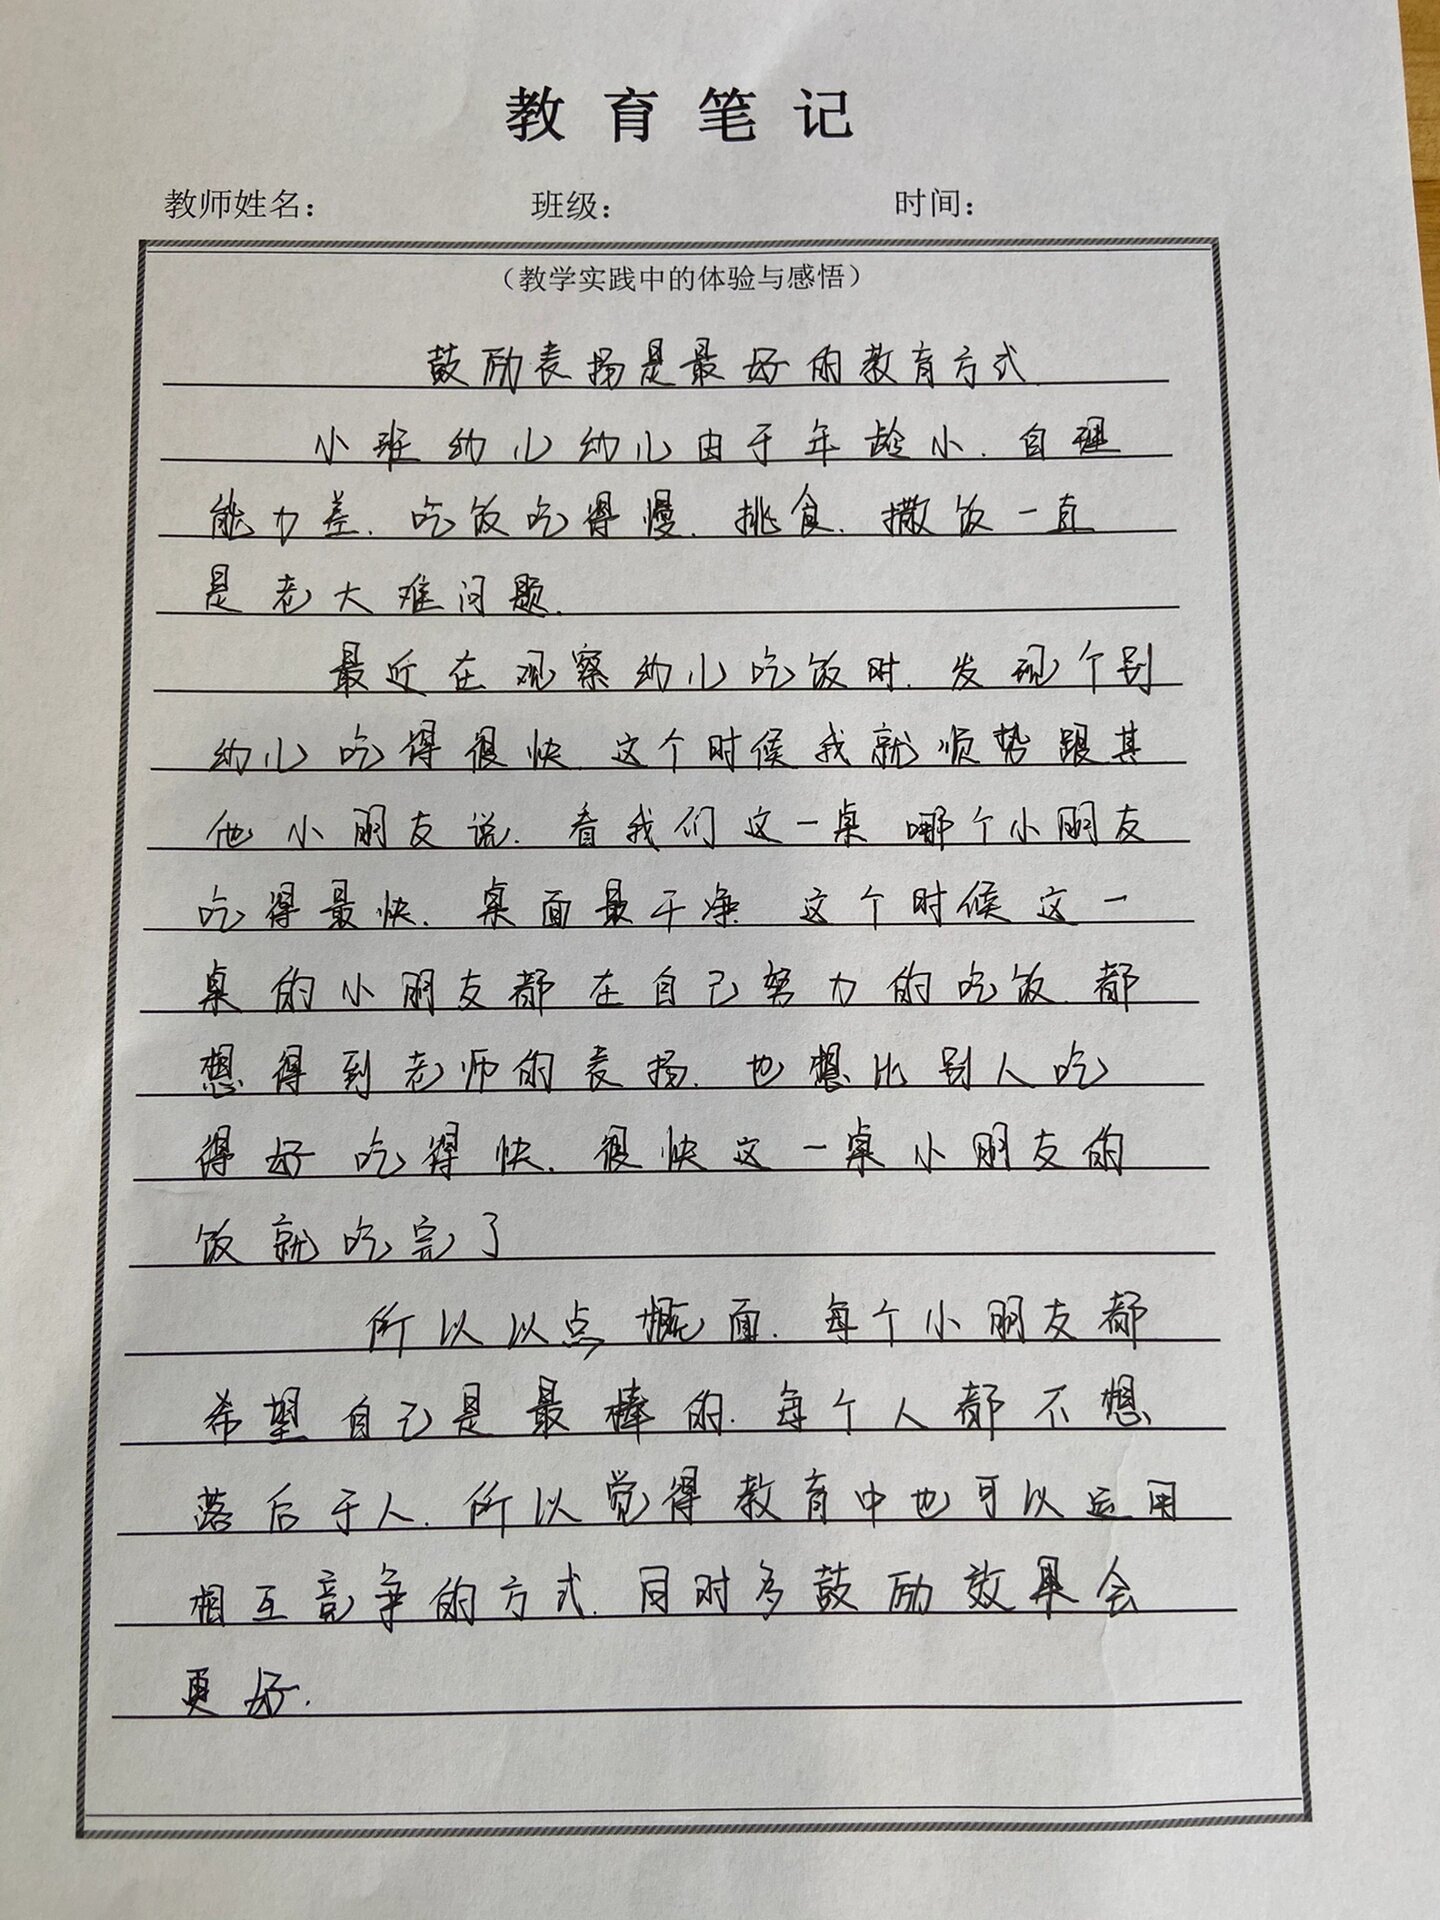 教育笔记
教师姓名： 班级： 时间：
（教学实践中的体验与感悟）
鼓励表扬是最好的教育方式.
小班幼儿幼儿由于年龄小.自理
能力差.吃饭吃得慢.挑食.撒饭一直
是老大难问题.
最近在观察幼儿吃饭时.发现个别
幼儿吃得很快.这个时候我就顺势跟其
他小朋友说.看我们这一桌哪个小朋友
吃得最快.桌面最干净.这个时候这一
桌的小朋友都在自己努力的吃饭.都
想得到老师的表扬.也想比别人吃
得好吃得快.很快这一桌小朋友的
饭就吃完了
所以以点概面.每个小朋友都
希望自己是最棒的.每个人都不想
落后于人.所以觉得教育中也可以运用
相互竞争的方式.同时多鼓励效果会
更好.